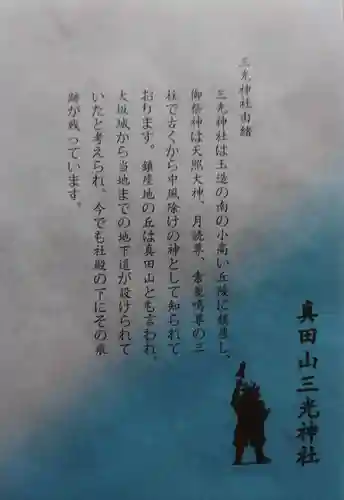 三光神社由緒
三光神社は玉造の南の小高い丘陵に鎮座し、
御祭神は天照大神、月読尊、素盞嗚尊の三
柱で古くから中風除けの神として知られて
おります。鎮座地の丘は真田山とも言われ、
大坂城から当地までの地下道が設けられて
いたと考えられ、今でも社殿の下にその痕
跡が残っています。
真田山三光神社